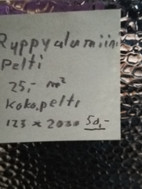 Ryppyalumiini
Pelti
25,- m²
Kokopelti
123 x 2000 50,-